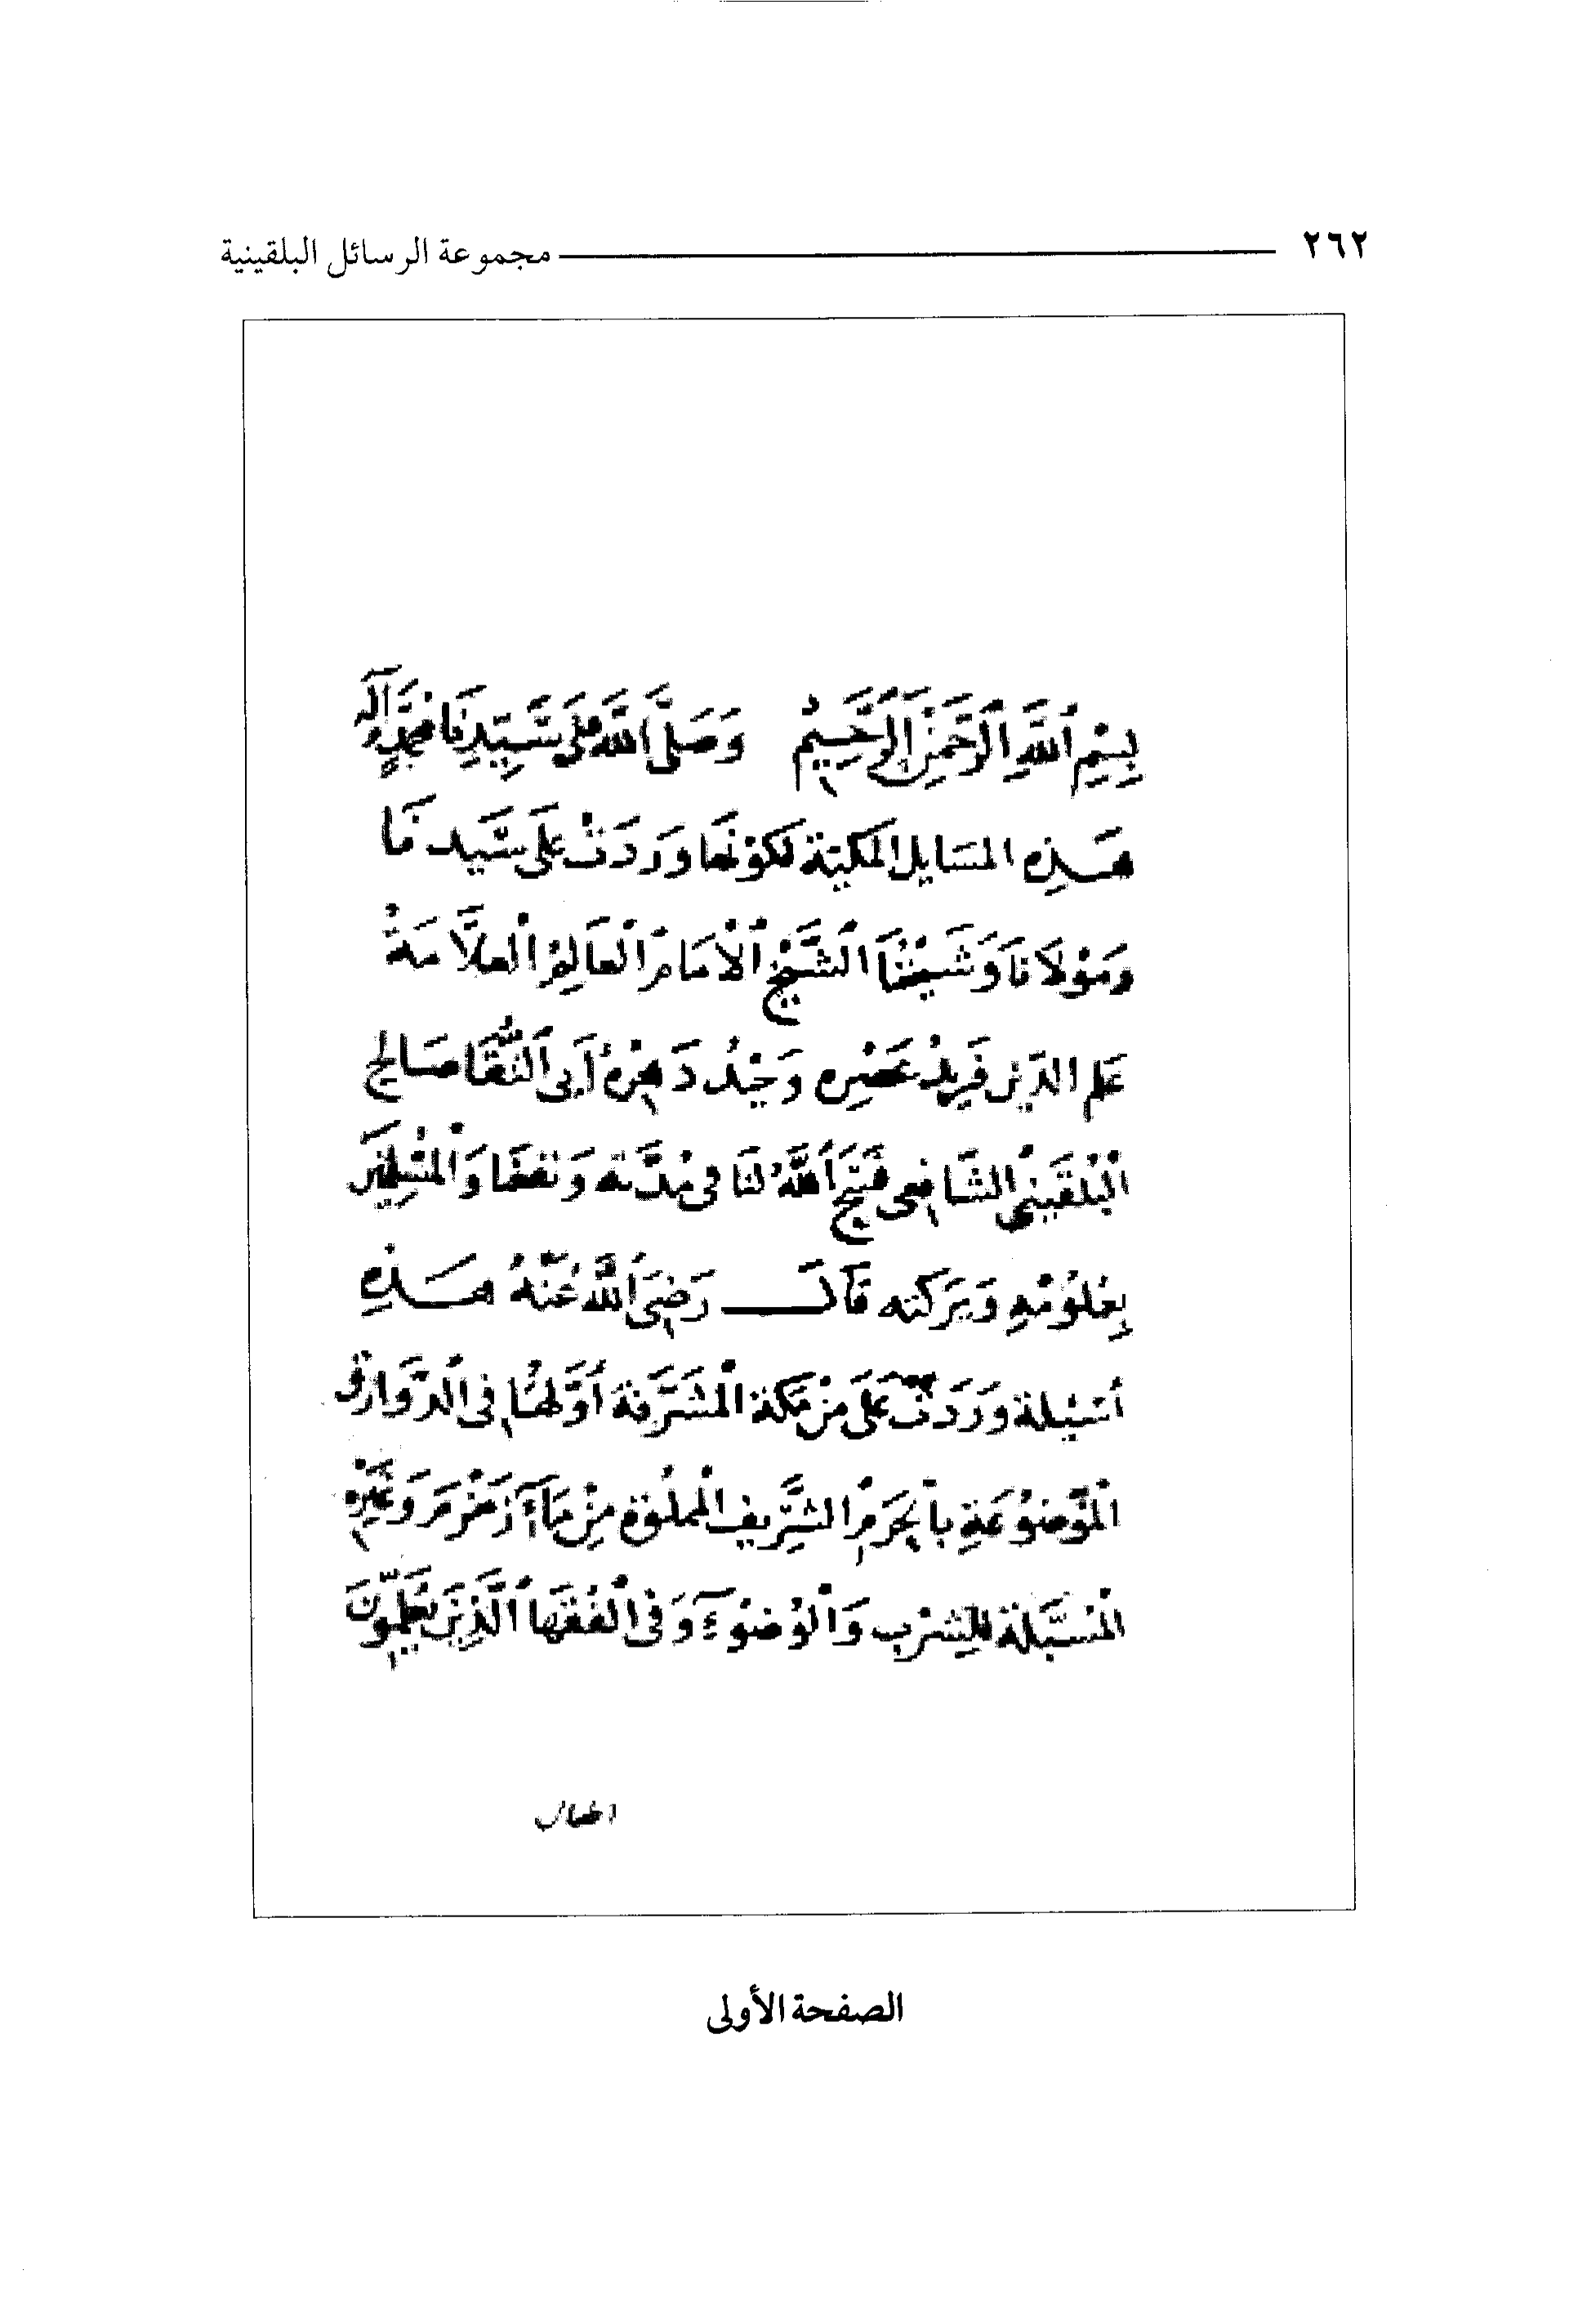 ٢٦٢ مجموعة الرسائل البلقينية
بِسْمِ اللَّهِ الرَّحْمَنِ الرَّحِيمِ وَصَلَّى اللَّهُ عَلَى سَيِّدِنَا مُحَمَّدٍ وَآلِهِ
هَذِهِ المَسَايل المكيّة لكَوْنها وَرَدَتْ عَلى سَيّدنَا
وَمَوْلَانَا وَشَيْخنَا الشَّيْخِ الْإمَام الْعَالِمُ الْعلَّامَةُ
عَلم الدّين فَرِيدُ عَصْرِهِ وَحِيْدُ دَهْرِهُ أَبى الْبَقَا صَالح
الْبُلْقَيني الشَّافِعى فَتَحَ اللَّهُ لنَا فى مُدَّته وَنفعَنا وَالْمُسْلِمِيْن
بِعُلُوْمُهِ وَبَرَكته قَالَ رَضِىَ اللَّهُ عَنْهُ هَذِهِ
أسْئِلة وَرَدَتْ عَلَى مِنْ مَكة الْمُشَرَّفة أَوَّلهَا فى الدَّوَارق
الْمَوْضُوْعَةِ بالْحَرَمِ الشَّرِيف الْمملُوْةِ مِنْ مَاءِ زَمْزَمَرَ وَغَيْرِهِ
الْمُسَبَّلَة لِلشُرْبِ وَالْوُضُوْءِ وَفى الْفُقَهَا الَّذِيْنَ يُعَلِّمُونَ
الصفحة الأولى